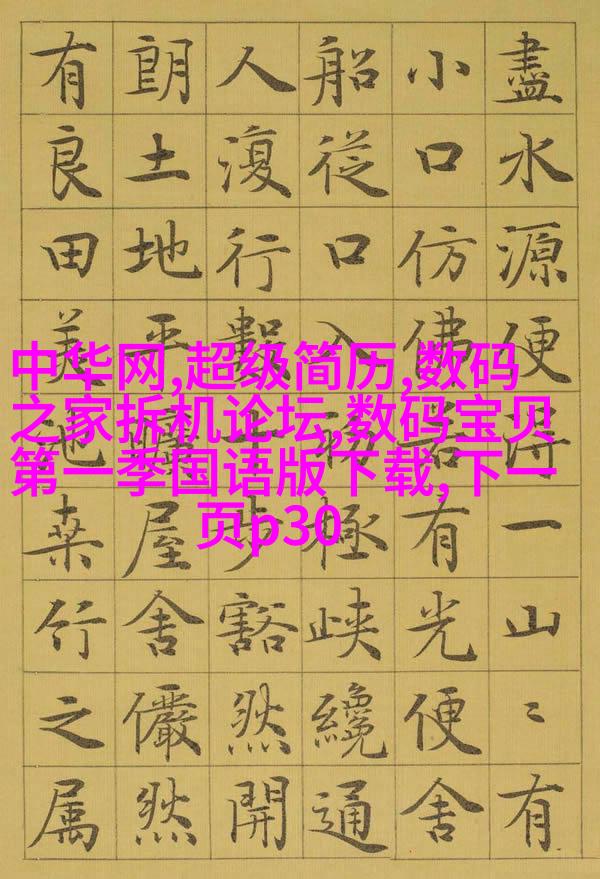 中华网,超级简历,数码
之家拆机论坛,数码宝贝
第一季国语版下载,下一
页p30
盡水源便得一山〻有
小口仿佛若有光便舍
船從口入初極峽纔通
人復行數十步豁然開
朗土地平曠屋舍儼然
有良田美池桑竹之属